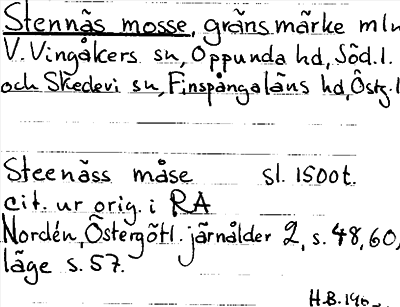 Stennäs mosse, gränsmärke mln
V. Vingåkers sn, Oppunda hd, Söd.l.
och Skedevi sn, Finspångaläns hd, Östg.l
Steenäss måse sl. 1500t.
cit. ur orig. i RA
Nordén, Östergötl. järnålder 2, s. 48, 60,
läge s. 57.
H.B.